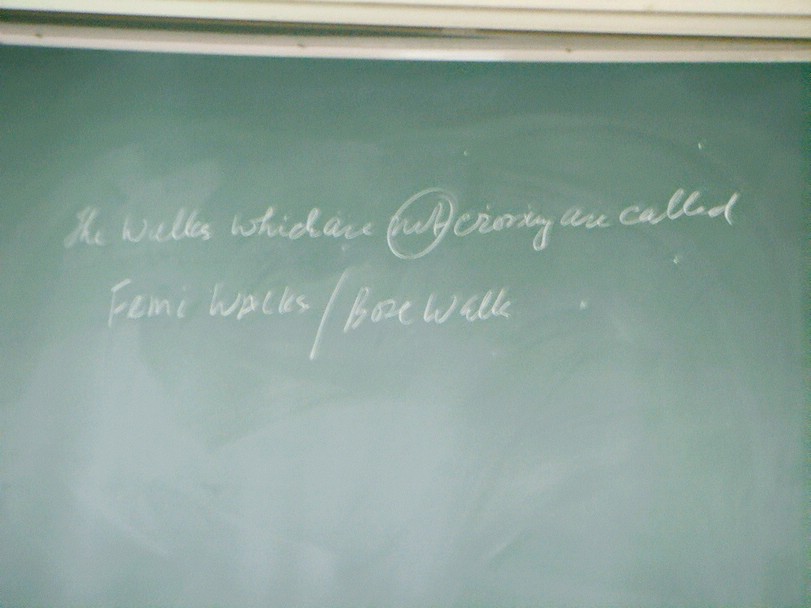 The walks which are not crossing are called
Fermi Walks / Bose Walk